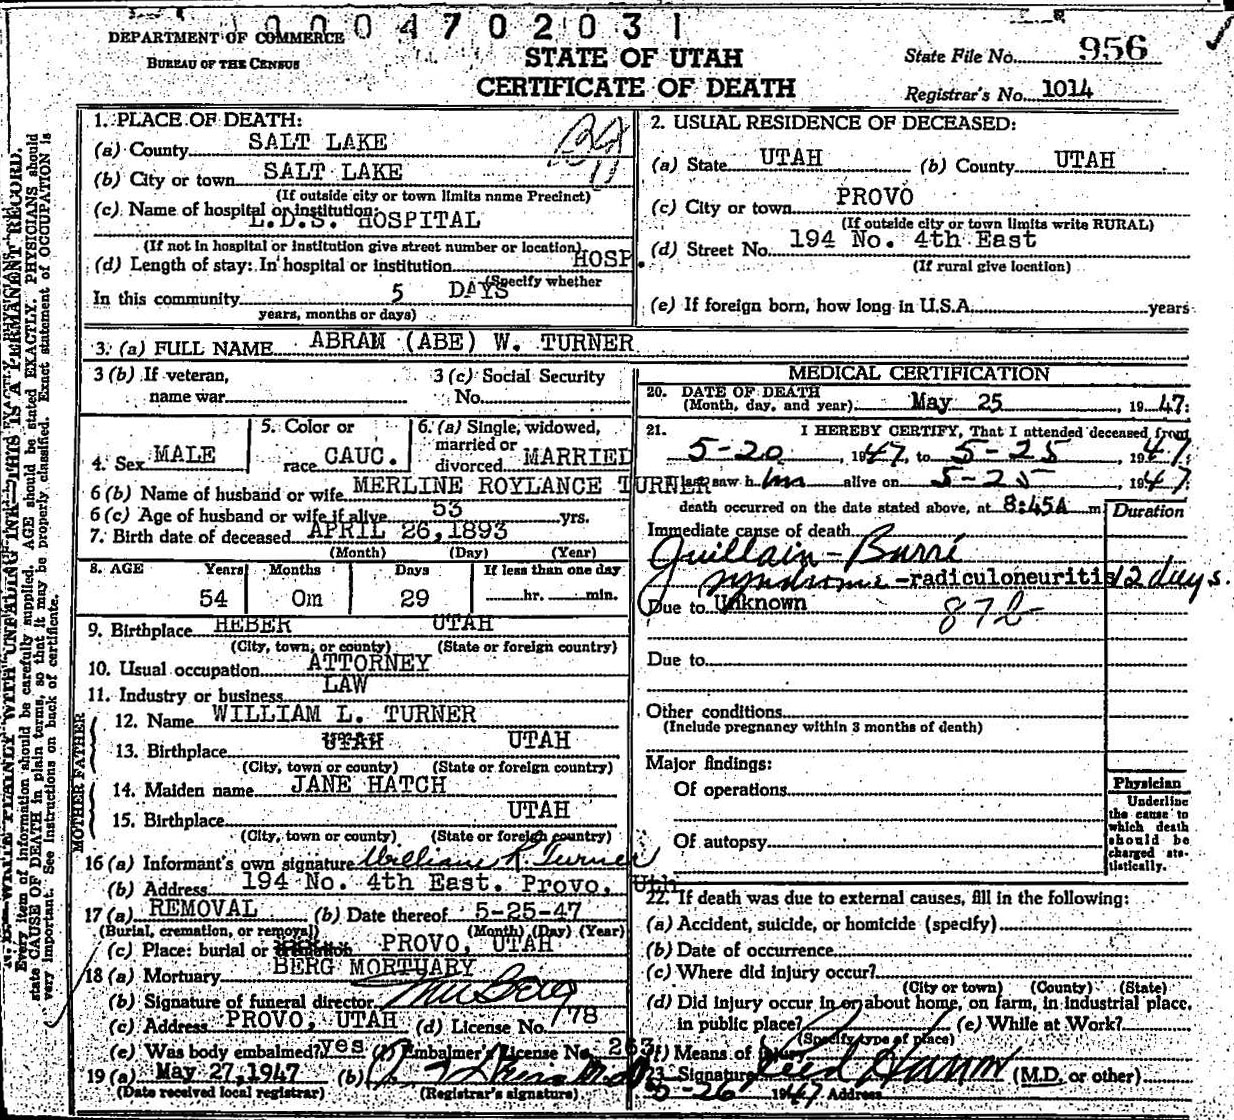 0 0 0 4 7 0 2 0 3 1
DEPARTMENT OF COMMERCE
BUREAU OF THE CENSUS
STATE OF UTAH
CERTIFICATE OF DEATH
State File No. 956
Registrar's No. 1014
N. B.—WRITE PLAINLY WITH UNFADING INK—THIS IS A PERMANENT RECORD.
Every item of information should be carefully supplied. AGE should be stated EXACTLY. PHYSICIANS should
state CAUSE OF DEATH in plain terms, so that it may be properly classified. Exact statement of OCCUPATION is
very important. See instructions on back of certificate.
1. PLACE OF DEATH:
(a) County SALT LAKE
(b) City or town SALT LAKE
(If outside city or town limits name Precinct)
(c) Name of hospital or institution:
L.D.S. HOSPITAL
(If not in hospital or institution give street number or location)
(d) Length of stay: In hospital or institution HOSP.
(Specify whether
In this community 5 DAYS
years, months or days)
2. USUAL RESIDENCE OF DECEASED:
(a) State UTAH (b) County UTAH
(c) City or town PROVO
(If outside city or town limits write RURAL)
(d) Street No. 194 No. 4th East
(If rural give location)
(e) If foreign born, how long in U.S.A. years
3. (a) FULL NAME ABRAM (ABE) W. TURNER
3 (b) If veteran,
name war
3 (c) Social Security
No.
4. Sex MALE
5. Color or
race CAUC.
6. (a) Single, widowed,
married or
divorced MARRIED
6 (b) Name of husband or wife MERLINE ROYLANCE TURNER
6 (c) Age of husband or wife if alive 53 yrs.
7. Birth date of deceased APRIL 26, 1893
(Month) (Day) (Year)
8. AGE Years Months Days If less than one day
54 0m 29 hr. min.
9. Birthplace HEBER UTAH
(City, town, or county) (State or foreign country)
10. Usual occupation ATTORNEY
11. Industry or business LAW
MOTHER FATHER
12. Name WILLIAM L. TURNER
13. Birthplace UTAH UTAH
(City, town or county) (State or foreign country)
14. Maiden name JANE HATCH
15. Birthplace UTAH
(City, town or county) (State or foreign country)
16 (a) Informant's own signature William R. Turner
(b) Address 194 No. 4th East. Provo, Utah
17 (a) REMOVAL (b) Date thereof 5-25-47
(Burial, cremation, or removal) (Month) (Day) (Year)
(c) Place: burial or PROVO, UTAH
18 (a) Mortuary BERG MORTUARY
(b) Signature of funeral director
(c) Address PROVO, UTAH (d) License No. 778
(e) Was body embalmed? yes (f) Embalmer's License No. 263
19 (a) May 27, 1947 (b)
(Date received local registrar) (Registrar's signature)
MEDICAL CERTIFICATION
20. DATE OF DEATH
(Month, day, and year) May 25, 1947.
21. I HEREBY CERTIFY, That I attended deceased from
5-20, 1947, to 5-25, 1947,
last saw him alive on 5-25, 1947
death occurred on the date stated above, at 8:45A m
Duration
Immediate cause of death
Guillain-Barré
syndrome -radiculoneuritis 12 days.
Due to Unknown
87b
Due to
Other conditions
(Include pregnancy within 3 months of death)
Major findings:
Of operations
Of autopsy
Physician
Underline
the cause to
which death
should be
charged sta-
tistically.
22. If death was due to external causes, fill in the following:
(a) Accident, suicide, or homicide (specify)
(b) Date of occurrence
(c) Where did injury occur?
(City or town) (County) (State)
(d) Did injury occur in or about home, on farm, in industrial place,
in public place? (e) While at Work?
(Specify type of place)
(f) Means of injury
23. Signature (M.D. or other)
5-26 1947 Address